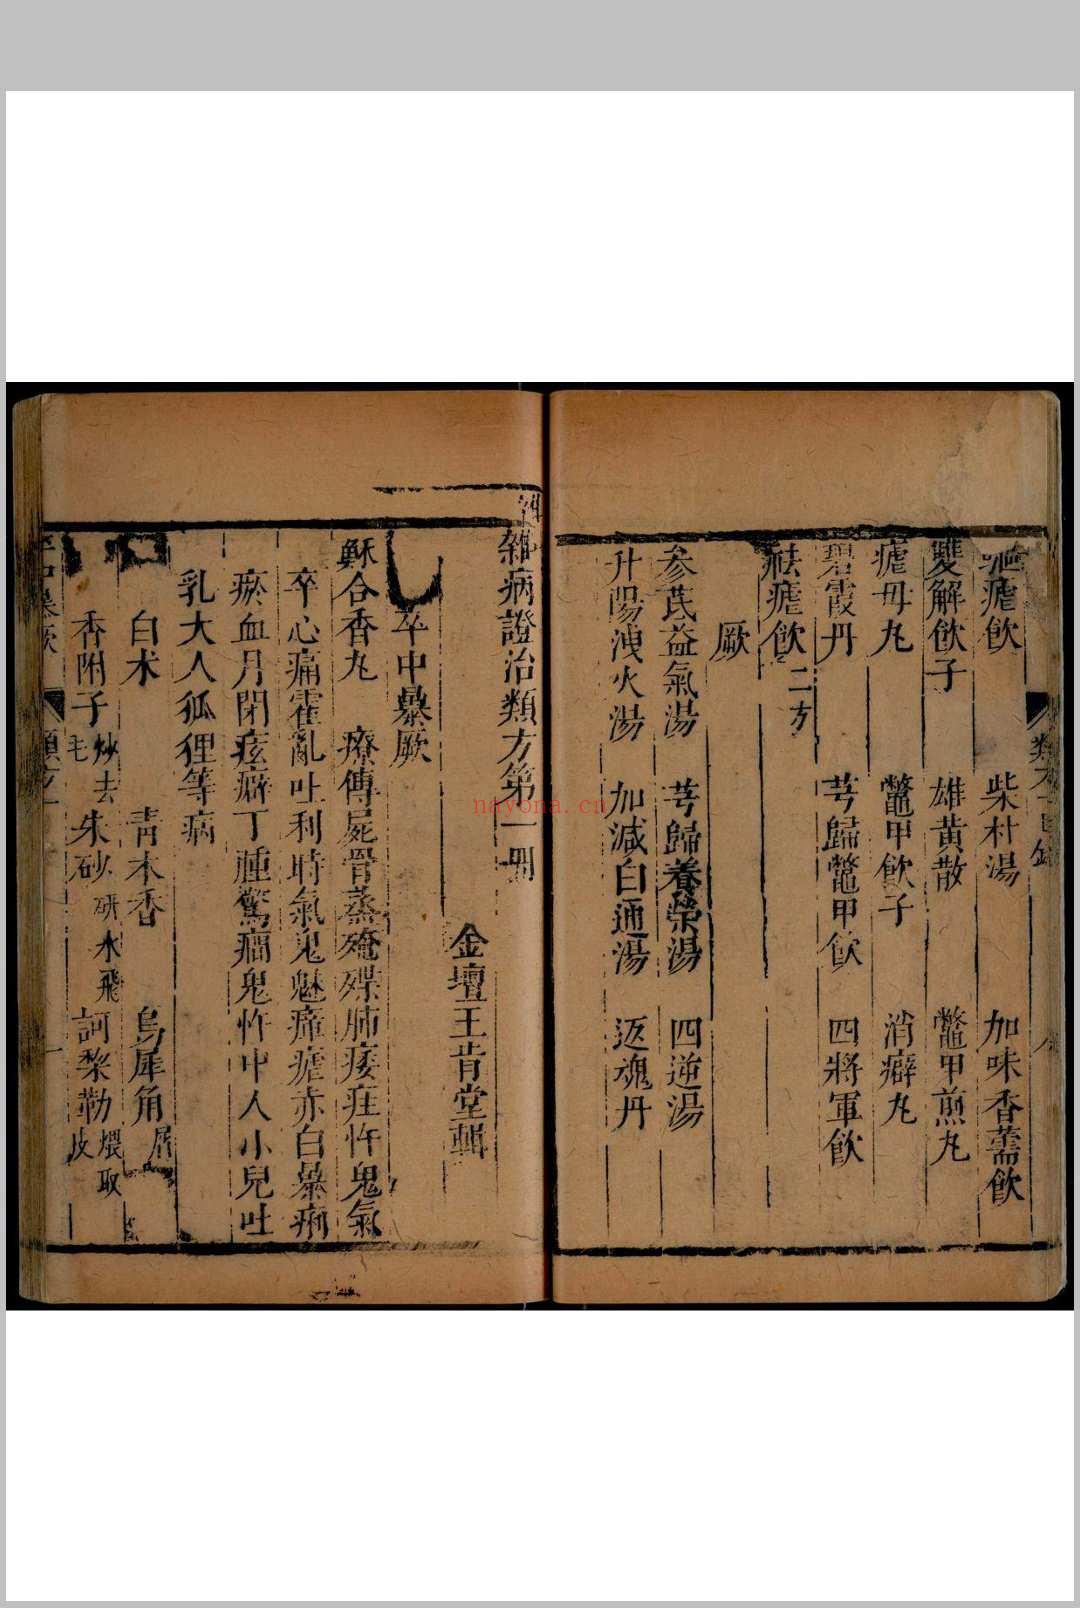 瘧飲　柴朴湯　加味香薷飲
雙解飲子　雄黃散　鱉甲煎丸
瘧母丸　鱉甲飲子　消癖丸
碧霞丹　芎歸鱉甲飲　四將軍飲
祛瘧飲二方
厥
參芪益氣湯　芎歸養榮湯　四逆湯
升陽洩火湯　加減白通湯　返魂丹
雜病證治類方第一冊
金壇王肯堂輯
卒中暴厥
穌合香丸　療傳屍骨蒸殗殜肺痿疰忤鬼氣
卒心痛霍亂吐利時氣鬼魅瘴瘧赤白暴痢
瘀血月閉痃癖丁腫驚癎鬼忤中人小兒吐
乳大人狐狸等病
白朮　青木香　烏犀角屑
香附子炒去毛　朱砂研水飛　訶黎勒煨取皮
nayona.cn